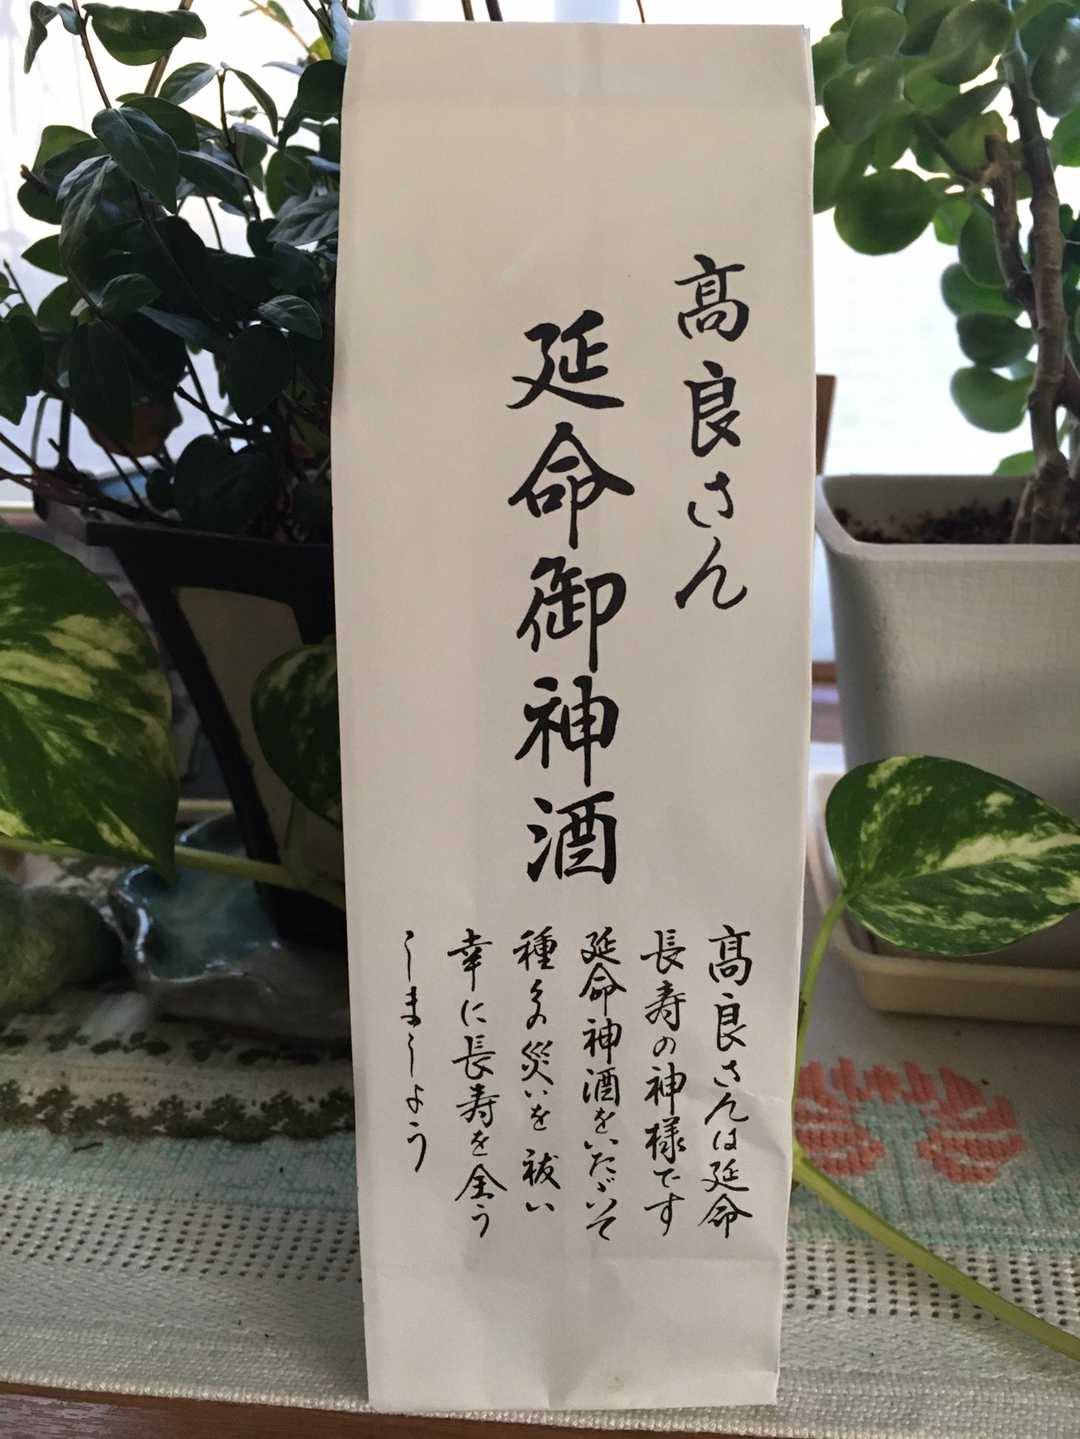 髙良さん
延命御神酒
髙良さんは延命
長寿の神様です
延命神酒をいたゞいて
種々の災いを祓い
幸に長寿を全う
しましょう